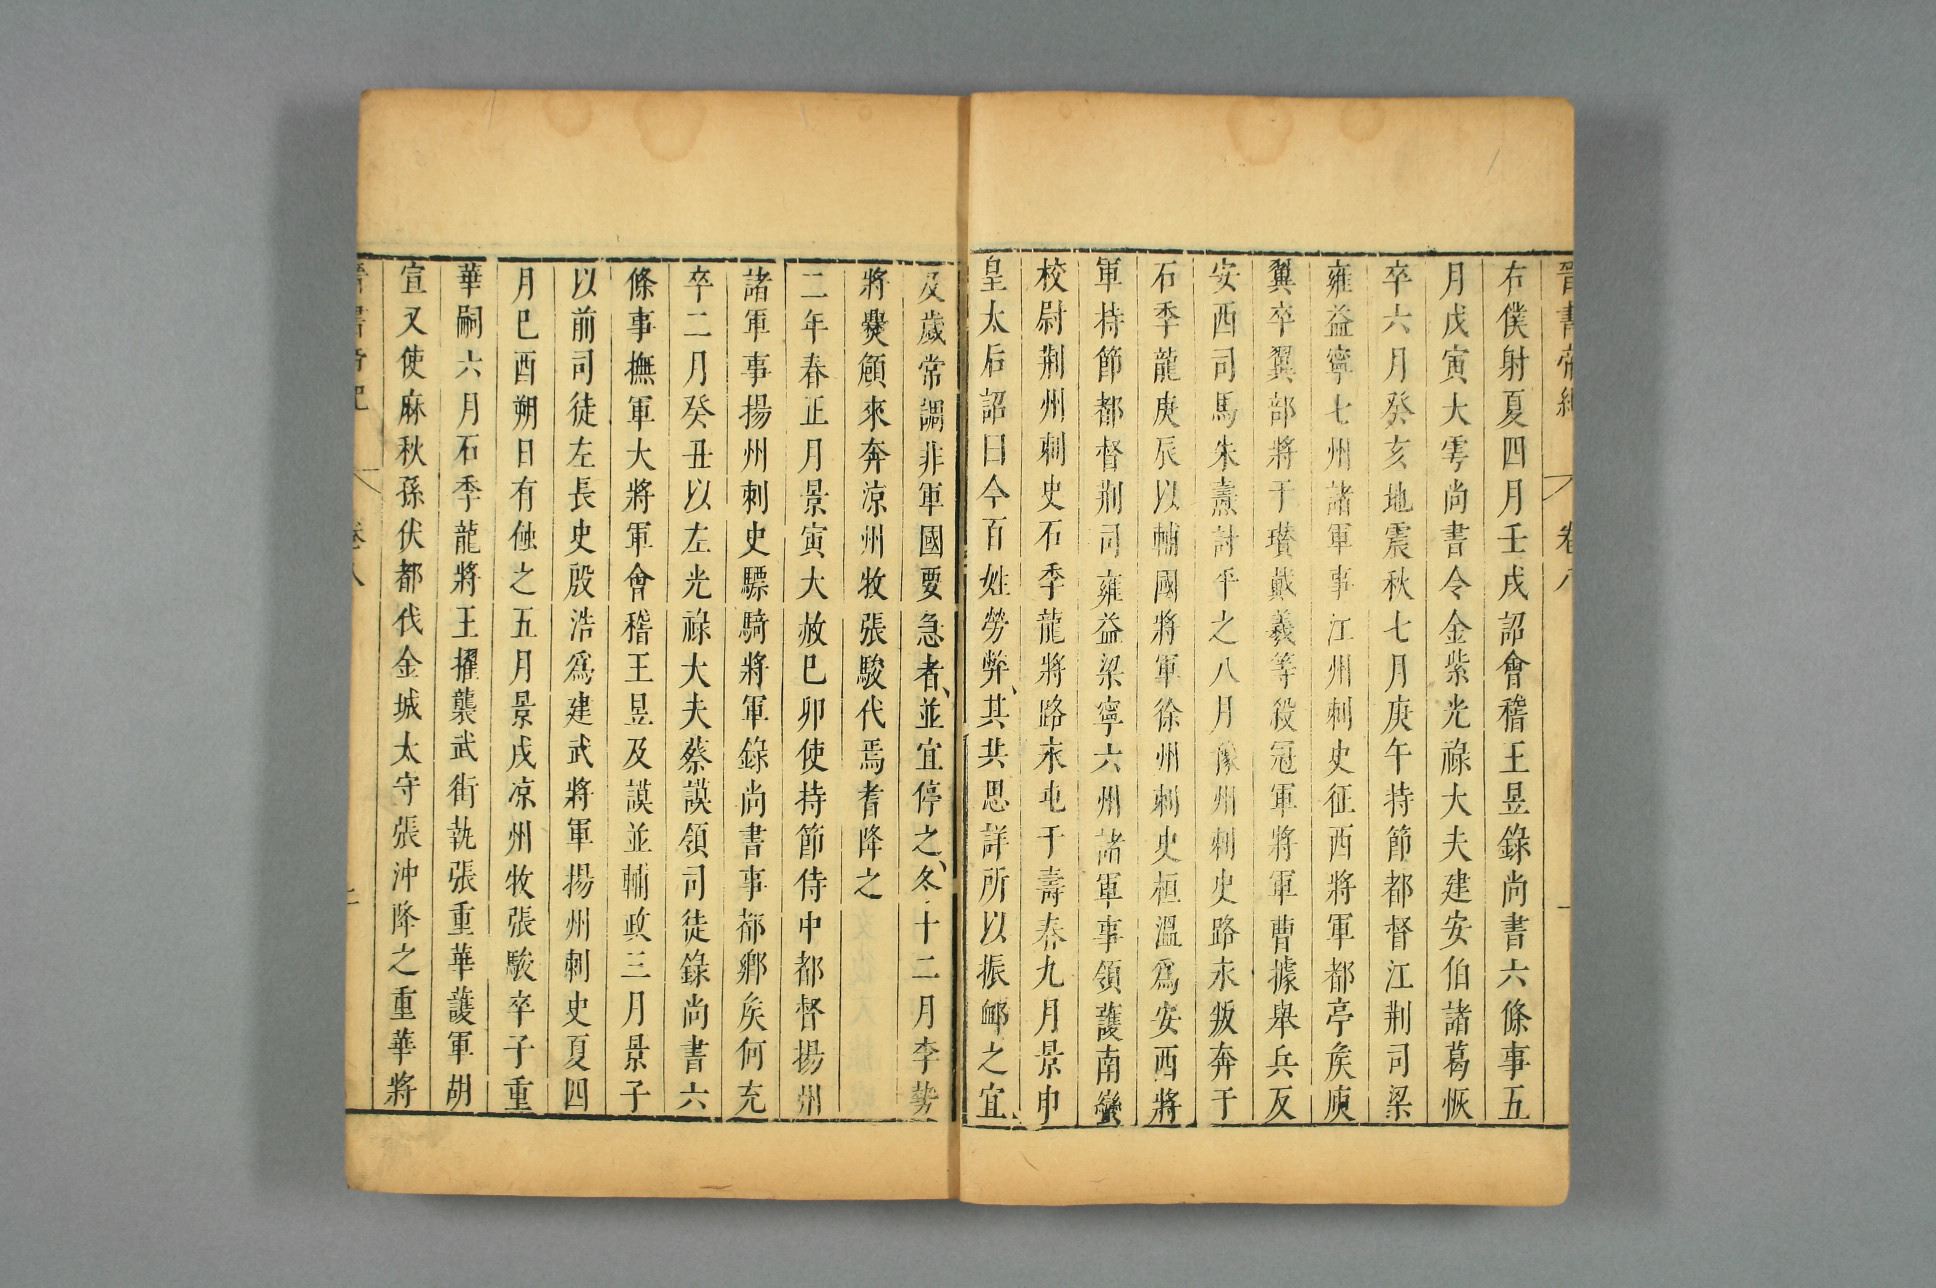 晉書帝紀 卷八 一
右僕射夏四月壬戌詔會稽王昱錄尚書六條事五
月戊寅大雩尚書令金紫光祿大夫建安伯諸葛恢
卒六月癸亥地震秋七月庚午持節都督江荆司梁
雍益寧七州諸軍事江州刺史征西將軍都亭矦庾
翼卒翼部將于瓚戴羲等殺冠軍將軍曹據舉兵反
安西司馬朱燾討平之八月豫州刺史路永叛奔于
石季龍庚辰以輔國將軍徐州刺史桓溫爲安西將
軍持節都督荆司雍益梁寧六州諸軍事領護南蠻
校尉荆州刺史石季龍將路永屯于壽春九月景申
皇太后詔曰今百姓勞弊其共思詳所以振卹之宜
及歲常調非軍國要急者並宜停之冬十二月李勢
將爨頠來奔涼州牧張駿伐焉耆降之
二年春正月景寅大赦巳卯使持節侍中都督揚州
諸軍事揚州刺史驃騎將軍錄尚書事都鄕矦何充
卒二月癸丑以左光祿大夫蔡謨領司徒錄尚書六
條事撫軍大將軍會稽王昱及謨並輔政三月景子
以前司徒左長史殷浩爲建武將軍揚州刺史夏四
月巳酉朔日有蝕之五月景戌凉州牧張駿卒子重
華嗣六月石季龍將王擢襲武街執張重華護軍胡
宣又使麻秋孫伏都伐金城太守張沖降之重華將
晉書帝紀 卷八